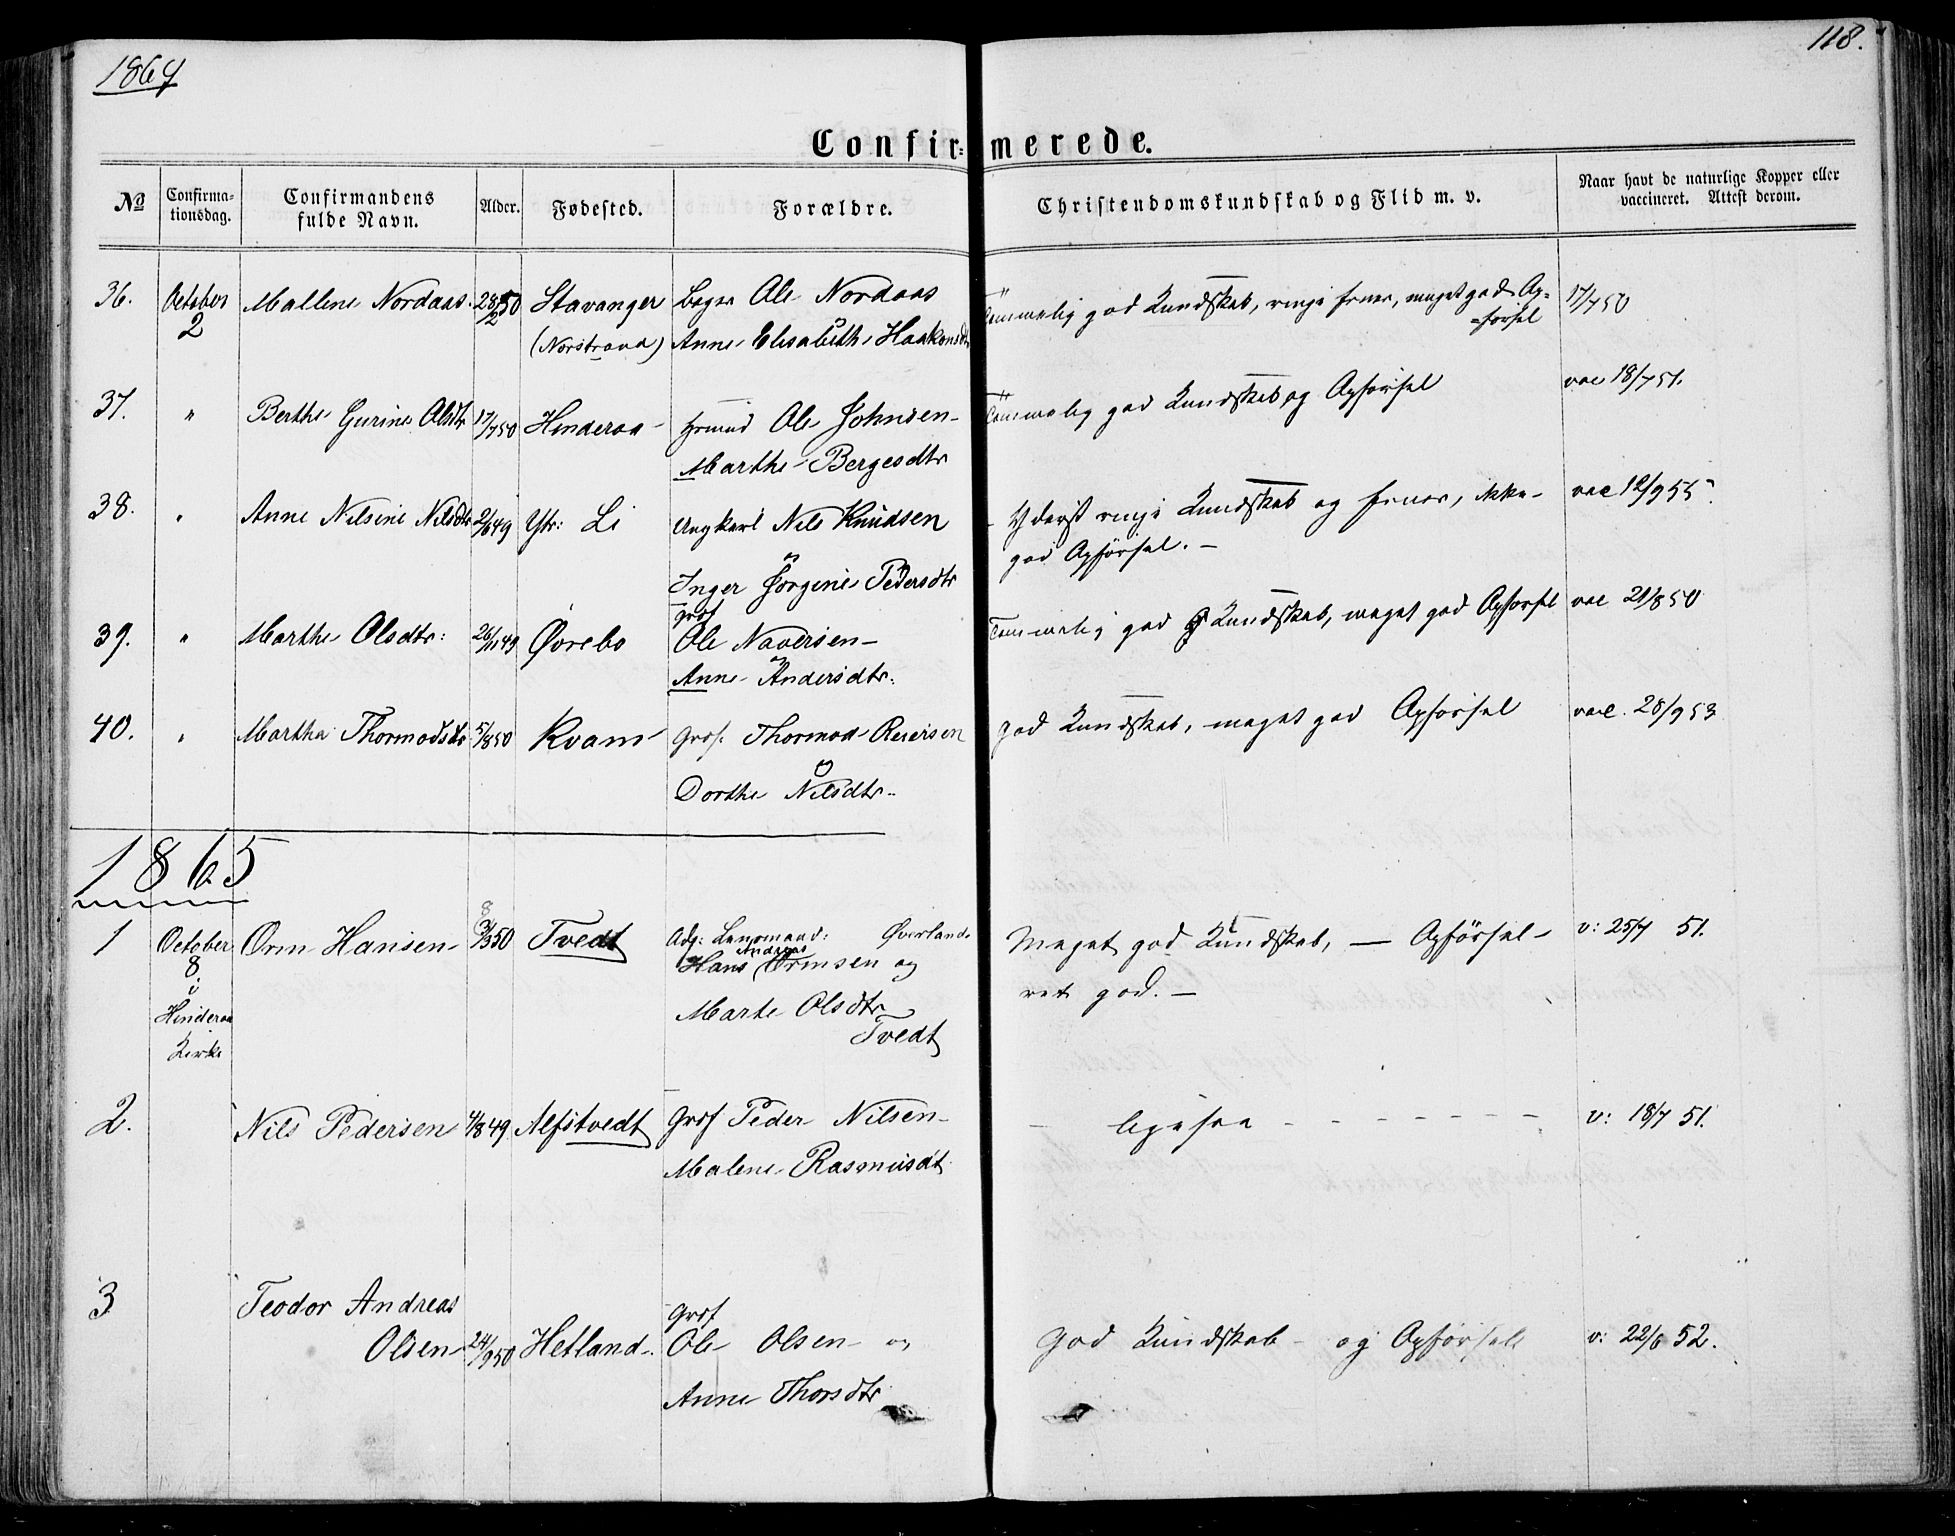 1864
118.
Confirmerede.
№
Confirma-
tionsdag.
Confirmandens
fulde Navn.
Alder.
Fødested.
Forældre.
Christendomskundskab og Flid m. v.
Naar havt de naturlige Kopper eller
vaccineret. Attest derom.
36. October Mallene Nordaas. 28/2 50 Stavanger Ole Nordaas Tømmelig god Kundskab, ringe meget god Op- 17/7 50
2 (Norstraaa) Anne Elisabeth Haakonsdtr =førsel
37. " Berthe Gurine Olsdtr 17/7 50 Hinderaa Ole Johnsen Tømmelig god Kundskab og Opførsel vac 18/7 51.
Marthe Bergesdtr
38. " Anne Nilsine Nilsdtr 2/6 49 Ytr: Li Ungkarl Nils Knudsen Yderst ringe Kundskab og ikke
god Opførsel. —
Inger Jørgine Pedersdtr
vac 12/9 55.
39. " Marthe Olsdtr: 26/11 49 Øvrebø Grdf
Ole Naversen Tømmelig god Kundskab, meget god Opførsel vac 21/8 50
Anne Andersdtr.
40. " Martha Thormodsdtr 5/8 50 Kvam Grdf. Thormod Reiersen god Kundskab, meget god Opførsel vac. 28/9 53
Dorthe Nilsdtr
1865
1 October Orm Hansen 50 Tvedt Adj: Lensmand: Øverland. Meget god Kundskab, — Opførsel v: 25/7 51.
8 Hans Andreas Ormsen og ret god. —
i Marte Olsdtr
Hinderaa Tvedt
Kirke
2. Nils Pedersen 4/8 49. Alfstvedt Grdf Peder Nilsen ligesaa - - - - - - v: 18/7 51.
Malene Rasmusdt
3 Teodor Andreas Grdf
Olsen 24/9 50 Hetland. Ole Olsen og God Kundskab og Opførsel v: 22/8 52.
Anne Thorsdtr